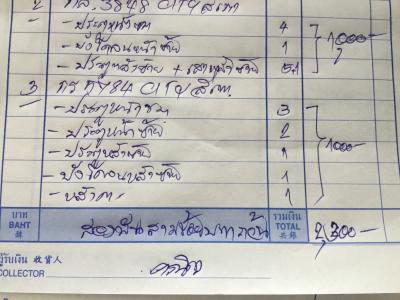 2 กล. 3848 CITY สีเทา
- ประตูหน้าขวา 4
- บังโคลนหน้าซ้าย 1 1000-
- ประตูหลังซ้าย + เสาหน้าซ้าย
3 กร 9784 CITY สีเทา
- ประตูหน้าขวา 3
- ประตูหน้าซ้าย 2
- ประตูหลังซ้าย 1 1000-
- บังโคลนหลังซ้าย 1
- หลังคา 1
บาท
BAHT
銖
สองพันสามร้อยบาทถ้วน
รวมเงิน
TOTAL
共銖
2,300-
ผู้รับเงิน 收貨人
COLLECTOR